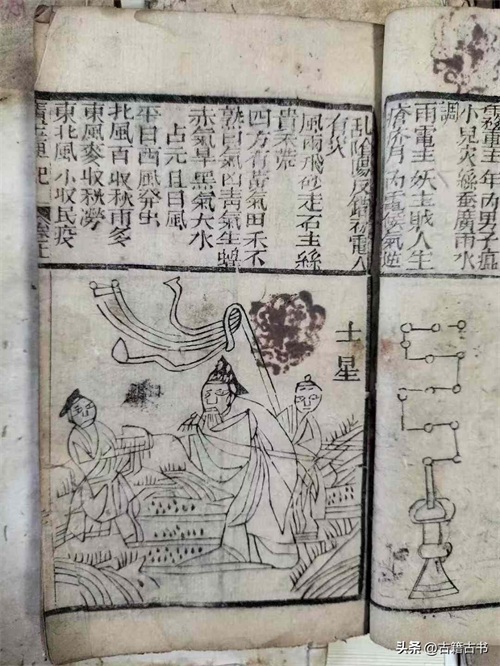 年內男子瘟
小兒災絲蚕廣雨水
調
雨電主妖主賊人生
瘡疥月內電候氣逆
乱陰陽反錯
有災
風雨飛砂走石主絲
貴禾荒
四方有黃氣田禾不
熟白氣凶青氣生蝗
赤氣旱黑氣大水
占元旦日風
平日西風發虫
北風百收秋雨多
東風麥收秋澇
東北風小収民疫
土星
头条 @古籍古书